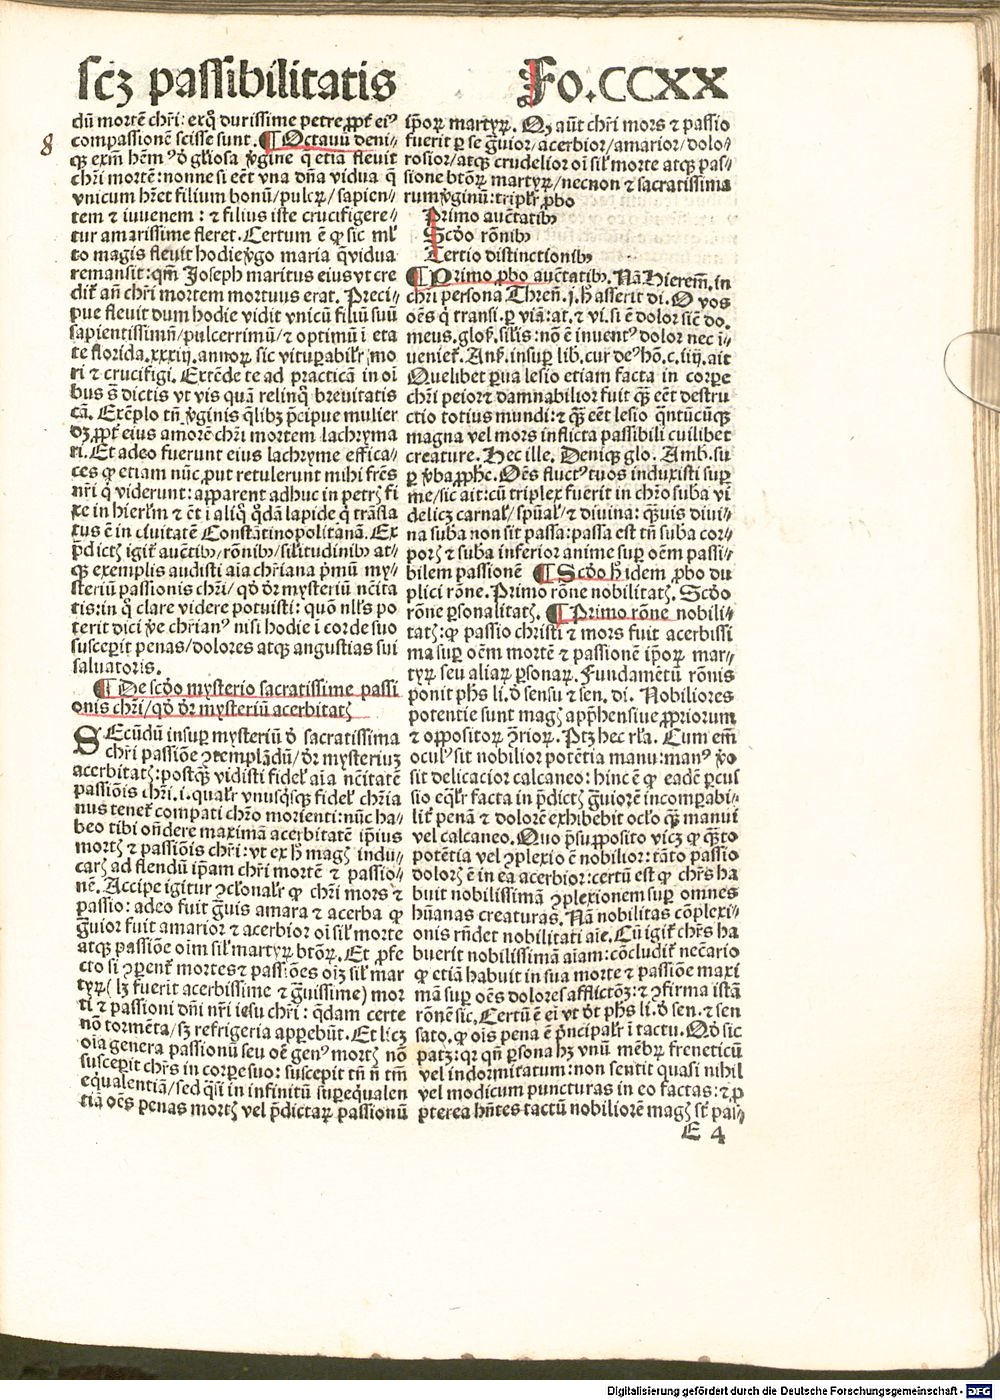 scꝫ passibilitatis
Fo.CCXX
8
dū mortē chr̄i: exq̄ durissime petre ꝓpt̄ ei⁹
compassionē scisse sunt. ¶ Octauū deni-
qꝫ exm̄ hēm⁹ ð gl̄iosa v̄gine q̄ etiā fleuit
chr̄i mortē: nonne si eēt vna dn̄a vidua q̄
vnicum hr̄et filium bonū/pulcꝝ/sapien-
tem et iuuenem: ⁊ filius iste crucifigere-
tur amarissime fleret. Certum ē ꝙ sic ml̄
to magis fleuit hodie v̄go maria q̄ vidua
remansit: qm̄ Joseph maritus eius vt cre
dit̄ an̄ chr̄i mortem mortuus erat. Preci-
pue fleuit dum hodie vidit vnicū filiū suū
sapientissimū/pulcerrimū/⁊ optimū ī eta
te florida.xxxiij.annoꝝ sic vituꝑabilr̄ mo
ri ⁊ crucifigi. Extēde te ad practicā in oī
bus s̄ dictis vt vis quā relinq̄ breuitatis
cā. Exēplo tn̄ v̄ginis q̄libꝫ p̄cipue mulier
dꝫ ꝓpt̄ eius amorē chr̄i mortem lachryma
ri. Et adeo fuerunt eius lachryme effica-
ces ꝙ etiam nūc ꝓut retulerunt mihi fr̄es
nr̄i q̄ viderunt: apparent adhuc in petrꝭ fi
xe in hierlm̄ ⁊ ēt ī aliq̄ q̄dā lapide q̄ trāsla
tus ē in ciuitatē Constātinopolitanā. Ex
p̄dictꝭ igit̄ auc̄tibꝫ/rōnibꝫ/sil̄itudinibꝫ at-
qꝫ exemplis audisti aīa chr̄iana p̄mū my-
steriū passionis chr̄i/ qð ðr mysteriū nc̄ita
tis: in q̄ clare videre potuisti: quō nll̄s po
terit dici v̄e chr̄ian⁹ nisi hodie ī corde suo
susceperit penas/dolores atqꝫ angustias sui
saluatoris.
¶ De scðo mysterio sacratissime passi
onis chr̄i/ qð ðr mysteriū acerbitatꝭ
SEcūdū insuꝑ mysteriū ð sacratissima
chr̄i passiōe ꝯtemplādū/ ðr mysteriuꝫ
acerbitatꝭ: postqꝫ vidisti fidel̄ aīa nc̄itatē
passiōis chr̄i.i.qualr̄ vnusq̄sqꝫ fidel̄ chr̄ia
nus tenet̄ compati chr̄o morienti: nūc ha-
beo tibi on̄dere maximā acerbitatē ip̄ius
mortꝭ ⁊ passiōis chr̄i: vt ex h̄ magꝭ indu-
carꝭ ad flendū ip̄am chr̄i mortē ⁊ passio-
nē. Accipe igitur ꝯcl̄onalr̄ ꝙ chr̄i mors ⁊
passio: adeo fuit ḡuis amara ⁊ acerba ꝙ
ḡuior fuit amarior ⁊ acerbior oī sil̄ morte
atqꝫ passiōe oīm sil̄ martyꝝ btōꝝ. Et ꝓfe
cto si ꝯꝑent̄ mortes ⁊ passiōes oīꝫ sil̄ mar
tyꝝ (lꝫ fuerit acerbissime ⁊ ḡuissime) mor
ti ⁊ passioni dn̄i nr̄i iesu chr̄i: q̄dam certe
nō tormēta/sꝫ refrigeria apperebūt. Et licꝫ
oīa genera passionū seu oē gen⁹ mortꝭ nō
susceperit chr̄s in corpe suo: suscepit tn̄ n̄ tm̄
equalentiā/sed q̄si in infinitū suꝑequalen
tiā oēs penas mortꝭ vel p̄dictaꝝ passionū
ip̄oꝝ martyꝝ. Qꝫ aūt chr̄i mors ⁊ passio
fuerit ꝑ se ḡuior/acerbior/amarior/dolo-
rosior/atqꝫ crudelior oī sil̄ morte atqꝫ pas-
sione btōꝝ martyꝝ/necnon ⁊ sacratissima
rum v̄ginū: triplr̄ ꝓbo
Primo auc̄tatibꝫ
Scðo rōnibꝫ
Tertio distinctionibꝫ
¶ Primo ꝓbo auc̄tatibꝫ. Nā Hierem̄. in
chr̄i persona Thren̄.j.h̄ asserit di. O vos
oēs q̄ transi.ꝑ viā: at.⁊ vi. si ē dolor sic̄ do.
meus. glos̄. sil̄is: nō ē inuent⁹ dolor nec ī-
ueniet̄. Ans̄. insuꝑ lib̄. cur de⁹ hō.c.iiij. ait
Quelibet ꝑua lesio etiam facta in corpe
chr̄i peior ⁊ damnabilior fuit qꝫ eēt destru
ctio totius mundi: ⁊ qꝫ eēt lesio q̄ntūcūqꝫ
magna vel mors inflicta passibili cuilibet
creature. Hec ille. Deniqꝫ glo. Amb̄. su
ꝑ v̄ba ꝓphe. Oēs fluct⁹ tuos induxisti suꝑ
me/sic ait: cū triplex fuerit in chr̄o suba vī
delicꝫ carnal̄/spūal̄/⁊ diuina: qꝫuis diui-
na suba non sit passa: passa est tn̄ suba cor-
porꝭ ⁊ suba inferior anime suꝑ oēm passi-
bilem passionē ¶ Scðo h̄ idem ꝓbo du
plici rōne. Primo rōne nobilitatꝭ. Scðo
rōne ꝑsonalitatꝭ. ¶ Primo rōne nobili-
tatꝭ: ꝙ passio christi ⁊ mors fuit acerbissi
ma suꝑ oēm mortē ⁊ passionē ip̄oꝝ mar-
tyꝝ seu aliaꝝ ꝑsonaꝝ. Fundamētū rōnis
ponit phs̄ li.ð sensu ⁊ sen. di. Nobiliores
potentie sunt magꝭ app̄hensiue ꝓpriorum
⁊ oppositoꝝ ꝯ̄rioꝝ. Ptꝫ hec rl̄a. Cum em̄
ocul⁹ sit nobilior potētia manu: man⁹ v̄o
sit delicacior calcaneo: hinc ē ꝙ eadē ꝑcus
sio eq̄lr̄ facta in p̄dictꝭ ḡuiorē incompabi-
lit̄ penā ⁊ dolorē exhibebit oclō qꝫ manui
vel calcaneo. Quo p̄supposito vicꝫ ꝙ qꝫto
potētia vel ꝯplexio ē nobilior: tāto passio
dolorꝭ ē in ea acerbior: certū est ꝙ chr̄s ha
buit nobilissimā ꝯplexionem suꝑ omnes
hūanas creaturas. Nā nobilitas cōplexi-
onis rn̄det nobilitati aīe. Cū igit̄ chr̄s ha
buerit nobilissimā aīam: cōcludit̄ nec̄ario
ꝙ etiā habuit in sua morte ⁊ passiōe maxi
mā suꝑ oēs dolores afflictōꝫ: ⁊ ꝯfirma istā
rōnē sic. Certū ē ei vt ðt phs̄ li.ð sen. ⁊ sen
sato. ꝙ oīs pena ē p̄ncipalr̄ ī tactu. Qð sic
patꝫ: qꝛ qn̄ ꝑsona hꝫ vnū mēbꝝ freneticū
vel indormitatum: non sentit quasi nihil
vel modicum puncturas in eo factas: ⁊ ꝓ
pterea hn̄tes tactū nobiliorē magꝭ st̄ pas-
E 4
Digitalisierung gefördert durch die Deutsche Forschungsgemeinschaft - DFG